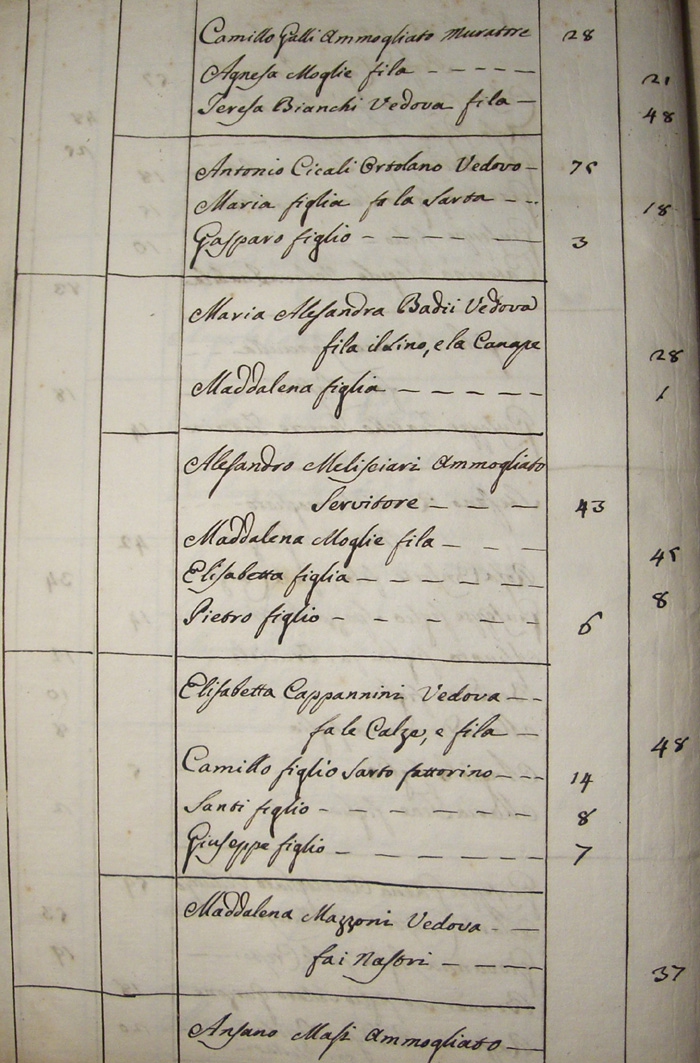 Camillo Galli Ammogliato Muratore 28
Agnesa Moglie fila - - - - - 21
Teresa Bianchi Vedova fila - 48
Antonio Cicali Ortolano Vedovo - 75
Maria figlia fa la Sarta - - - 18
Gasparo figlio - - - - - 3
Maria Alesandra Badii Vedova
fila il Lino, e la Canape 28
Maddalena figlia - - - - - 1
Alesandro Melisciari Ammogliato
Servitore - - - 43
Maddalena Moglie fila - - - 45
Elisabetta figlia - - - - - - 8
Pietro figlio - - - - - 6
Elisabetta Cappannini Vedova - - -
fa le Calze, e fila - 48
Camillo figlio Sarto fattorino - - - 14
Santi figlio - - - - - - 8
Giuseppe figlio - - - - - 7
Maddalena Mazzoni Vedova - -
fa i Nastri - - - - 37
Ansano Masi Ammogliato - -